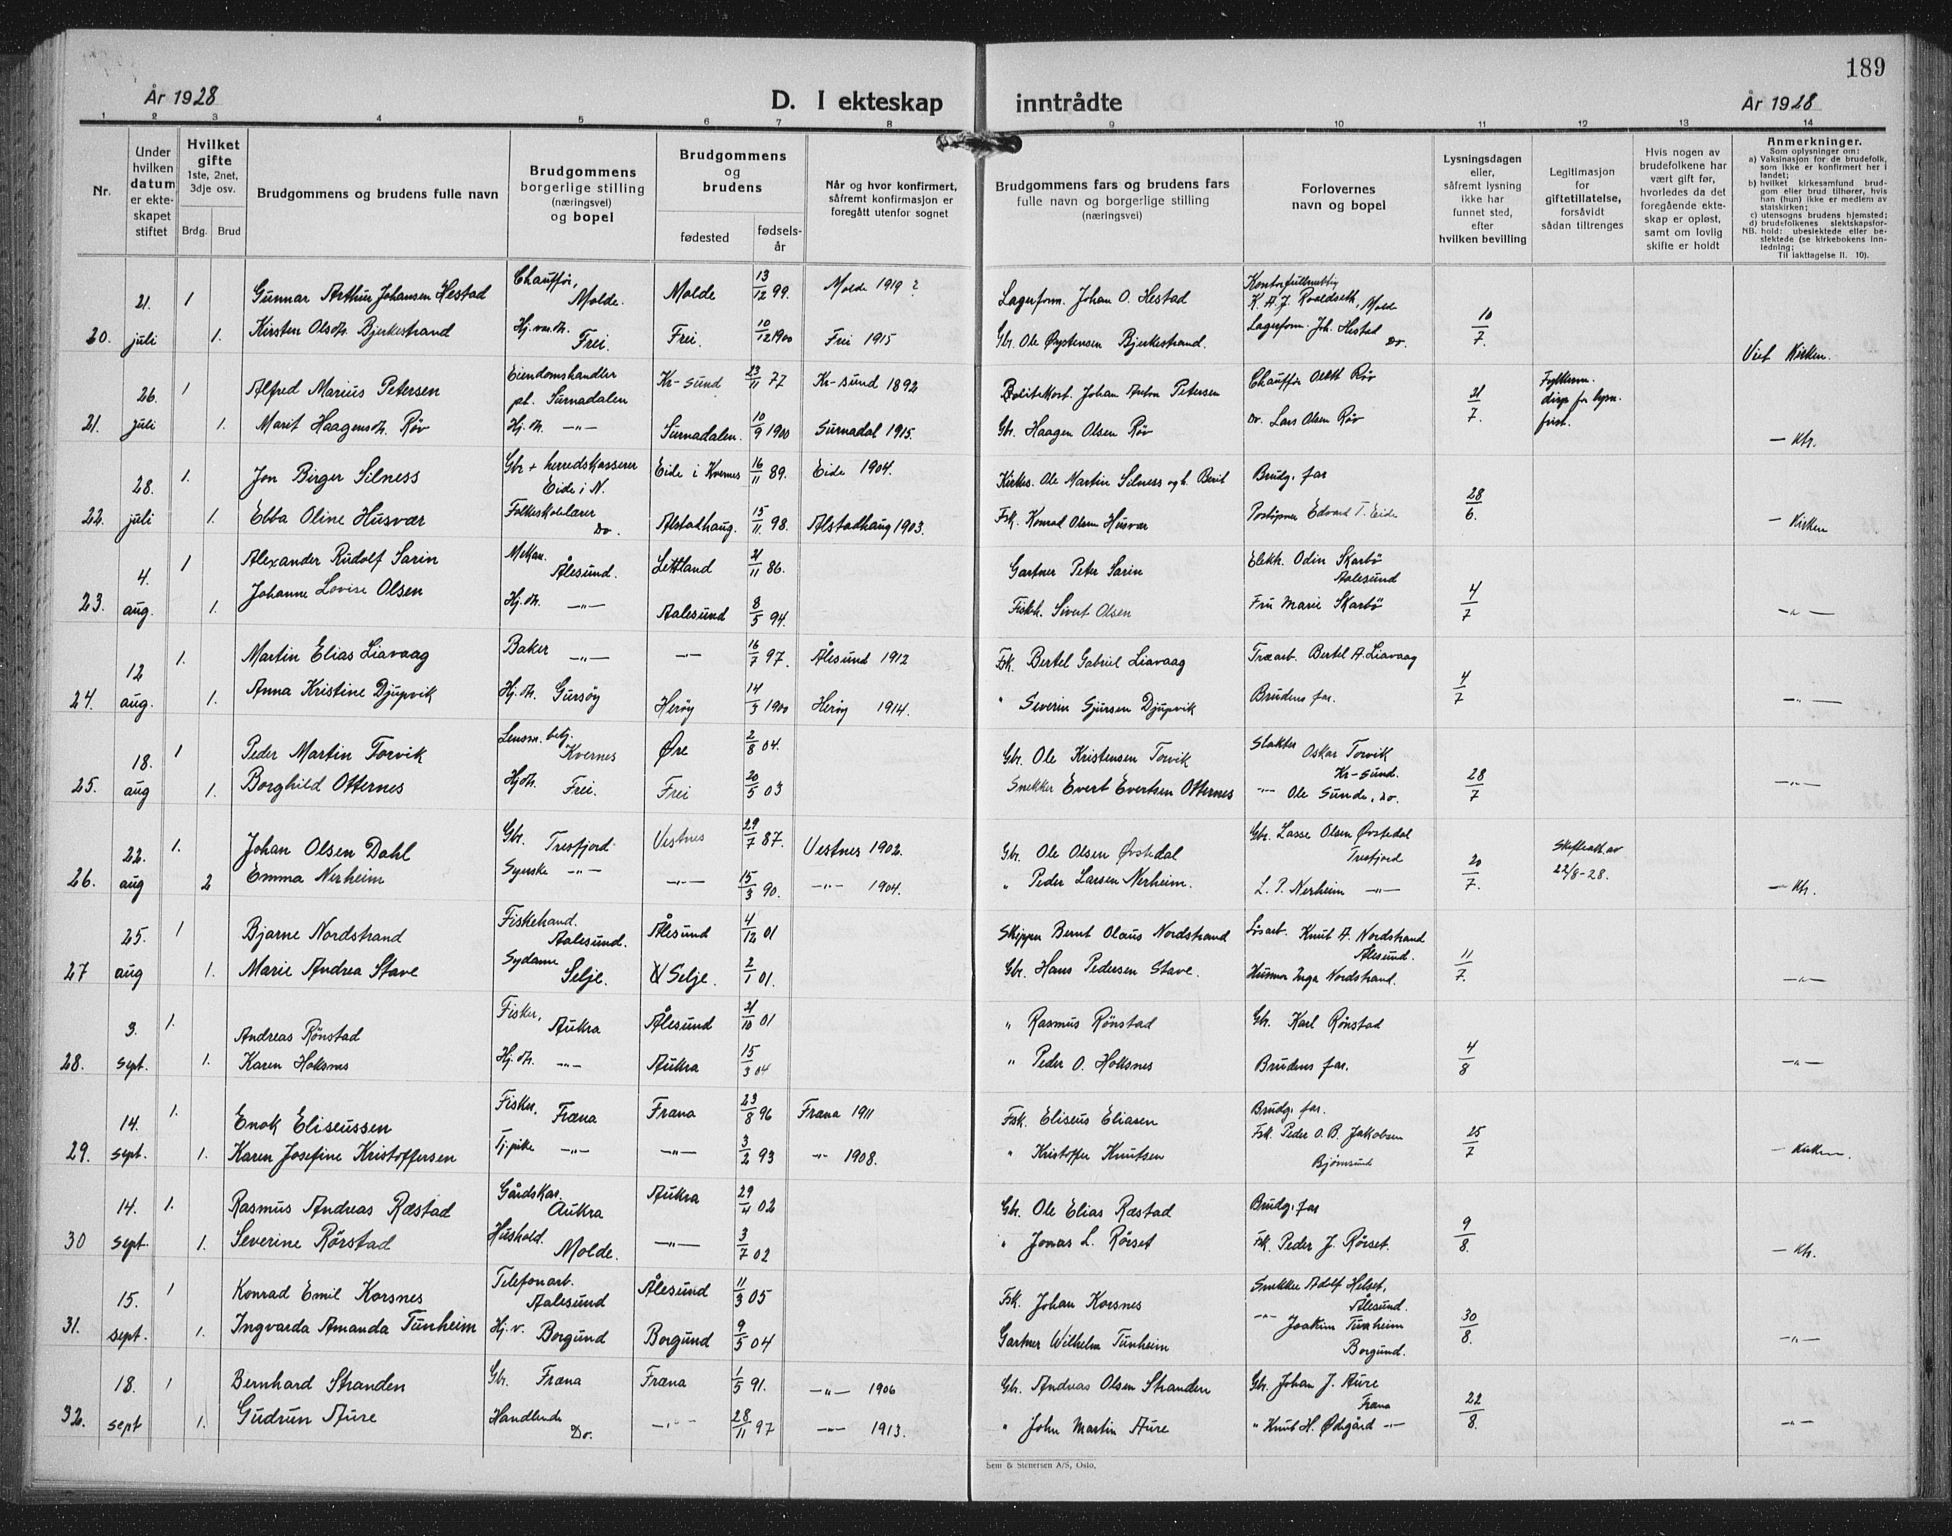 189
År 1928
D. I ekteskap inntrådte
År 1928
1 2 3 4 5 6 7 8 9 10 11 12 13 14
Nr.
Under hvilken datum er ekte- skapet stiftet
Hvilket gifte 1ste, 2net, 3dje osv.
Brdg. Brud
Brudgommens og brudens fulle navn
Brudgommens borgerlige stilling (næringsvei) og bopel
Brudgommens og brudens
fødested
fødsels- år
Når og hvor konfirmert, såfremt konfirmasjon er foregått utenfor sognet
Brudgommens fars og brudens fars fulle navn og borgerlige stilling (næringsvei)
Forlovernes navn og bopel
Lysningsdagen eller, såfremt lysning ikke har funnet sted, efter hvilken bevilling
Legitimasjon for giftetillatelse, forsåvidt sådan tiltrenges
Hvis nogen av brudefolkene har vært gift før, hvorledes da det foregående ekte- skap er opløst, samt om lovlig skifte er holdt
Anmerkninger.
Som oplysninger om:
a) Vaksinasjon for de brudefolk, som ikke er konfirmert her i landet;
b) hvilket kirkesamfund brud- gom eller brud tilhører, hvis han (hun) ikke er medlem av statskirken;
c) utensogns brudens hjemsted;
d) brudefolkenes slektskapsfor- hold: ubeslektede eller be- slektede (se kirkebokens inn- ledning;
NB.
Til iakttagelse II. 10).
21. 1 Gunnar Arthur Johansen Hestad Chauffør, Molde. Molde 13/12 99. Molde 1919? Lagerform. Johan O. Hestad K. A. J. Roaldseth, Molde
20. juli 1. Kirsten Olsdtr. Bjerkestrand Frei. Frei. 10/12 1900 Frei 1915 Gbr. Ole Øystensen Bjerkestrand. Lagerform. Joh. Hestad Do. 10/7. Viet Kirken.
26. 1 Alfred Marius Petersen Eiendomshandler pt. Surnadalen Kr-sund 23/11 77 Kr-sund 1892 Johan Anton Petersen Chauffør Røv
21. juli 1. Marit Haagensdtr. Røv Hj. dtr. -"- Surnadalen. 10/9 1900 Surnadal 1915. Gbr. Haagen Olsen Røv Do. Lars Olsen Røv 21/7.
28. 1. Jon Birger Silness Gbr + herredskasserer Eide i N. Eide i Kvernes 16/11 89. Eide 1904. Kirkes. Ole Martin Silness og h. Berit Brudg. far
22. juli 1. Ebba Oline Husvær Folkeskolelærer Do. Alstadhaug. 15/11 98. Alstadhaug 1903. Fsk. Konrad Olsen Husvær Edvard T. Eide 28/6. - Kirken
4. 1 Alexander Rudolf Sarin Mekan. Ålesund. Lettland 21/11 86. Gartner Peter Sarin Elektr. Odin Skarbø Aalesund
23. aug. 1. Johanne Lovise Olsen Hj. dtr. -"- Aalesund 8/5 94. Fiskh. Sivert Olsen Fru Marie Skarbø 4/7 -"-
12 1. Martin Elias Liavaag Baker -"- -"- 16/7 97. Ålesund 1912 Fsk. Bertel Gabriel Liavaag Træarb. Bertel A. Liavaag
24. aug. 1. Anna Kristine Djupvik Hj. dtr. Gursøy Herøy 14/3 1900 Herøy 1914. " Severin Sjursen Djupvik Brudens far. 4/7 -"-
18. 1 Peder Martin Torvik Lensm. betj. Kvernes Øre 2/8 04. Gbr. Ole Kristensen Torvik Slakter Oskar Torvik Kr-sund.
25. aug 1. Borghild Otternes Hjdtr. Frei. Frei 20/5 03 Snekker Evert Evertsen Otternes -"- Ole Sunde, do. 28/7 -"-
22. 1. Johan Olsen Dahl Gbr. Tresfjord Vestnes 29/7 87. Vestnes 1902. Gbr. Ole Olsen Øvstedal Gbr. Lasse Olsen Øvstedal Tresfjord
26. aug 2 Emma Nerheim Syerske -"- -"- 15/3 90. -"- 1904. " Peder Larsen Nerheim. L. P. Nerheim -"- 20/7. 22/8-28.
25. 1 Bjarne Nordstrand Fiskehand. Aalesund. Ålesund 4/12 01 Skipper Bernt Olaus Nordstrand Løsarb. Knut A. Nordstrand Ålesund.
27 aug 1. Marie Andrea Stave Sydame Selje. Selje. 2/1 01. Gbr. Hans Pedersen Stave. Husmor Inga Nordstrand. 11/7. -"-
3. 1. Andreas Rönstad Fisker, Aukra Ålesund 21/10 01 " Rasmus Rönstad Gbr. Karl Rönstad
28. sept. 1. Karen Hoksnes Hj. dtr. -"- Aukra 15/3 04 " Peder O. Hoksnes Brudens far. 4/8 -"-
14. 1. Enok Eliseussen Fisker, Fræna Fræna 23/8 96 Fræna 1911 Fsk. Eliseus Eliasen Brudg. far.
29. sept. 1. Karen Josefine Kristoffersen Tj. pike -"- -"- 3/2 93 -"- 1908. " Kristoffer Knutsen Fsk. Peder O. B. Jakobsen Bjørnsund 25/7 - Kirken.
14. 1. Rasmus Andreas Ræstad Gårdskar Aukra Aukra 29/4 02 Gbr. Ole Elias Ræstad Brudg. far
30 sept. 1. Severine Rørstad Hushold. Molde. -"- 3/7 02 " Jonas L. Rørset Fsk. Peder J. Rørset. 9/8.
15. 1 Konrad Emil Korsnes Telefonarb. Aalesund Ålesund 11/3 05 Fsk. Johan Korsnes Snekker Adolf Helset, Ålesund.
31. sept. 1. Ingvarda Amanda Tunheim Hj. v. Borgund Borgund 9/5 04 Gartner Wilhelm Tunheim -"- Joakim Tunheim Borgund. 30/8. -"-
18. 1 Bernhard Stranden Gbr. Fræna Fræna 1/5 91. -"- 1906 Gbr. Andreas Olsen Stranden Gbr. Johan J. Aure Fræna
32. sept 1. Gudrun Aure Handlende Do. -"- 28/11 97 -"- 1913. " John Martin Aure " Knut H. Ødegård -"- 22/8. -"-
Sem & Stenersen A/S, Oslo.